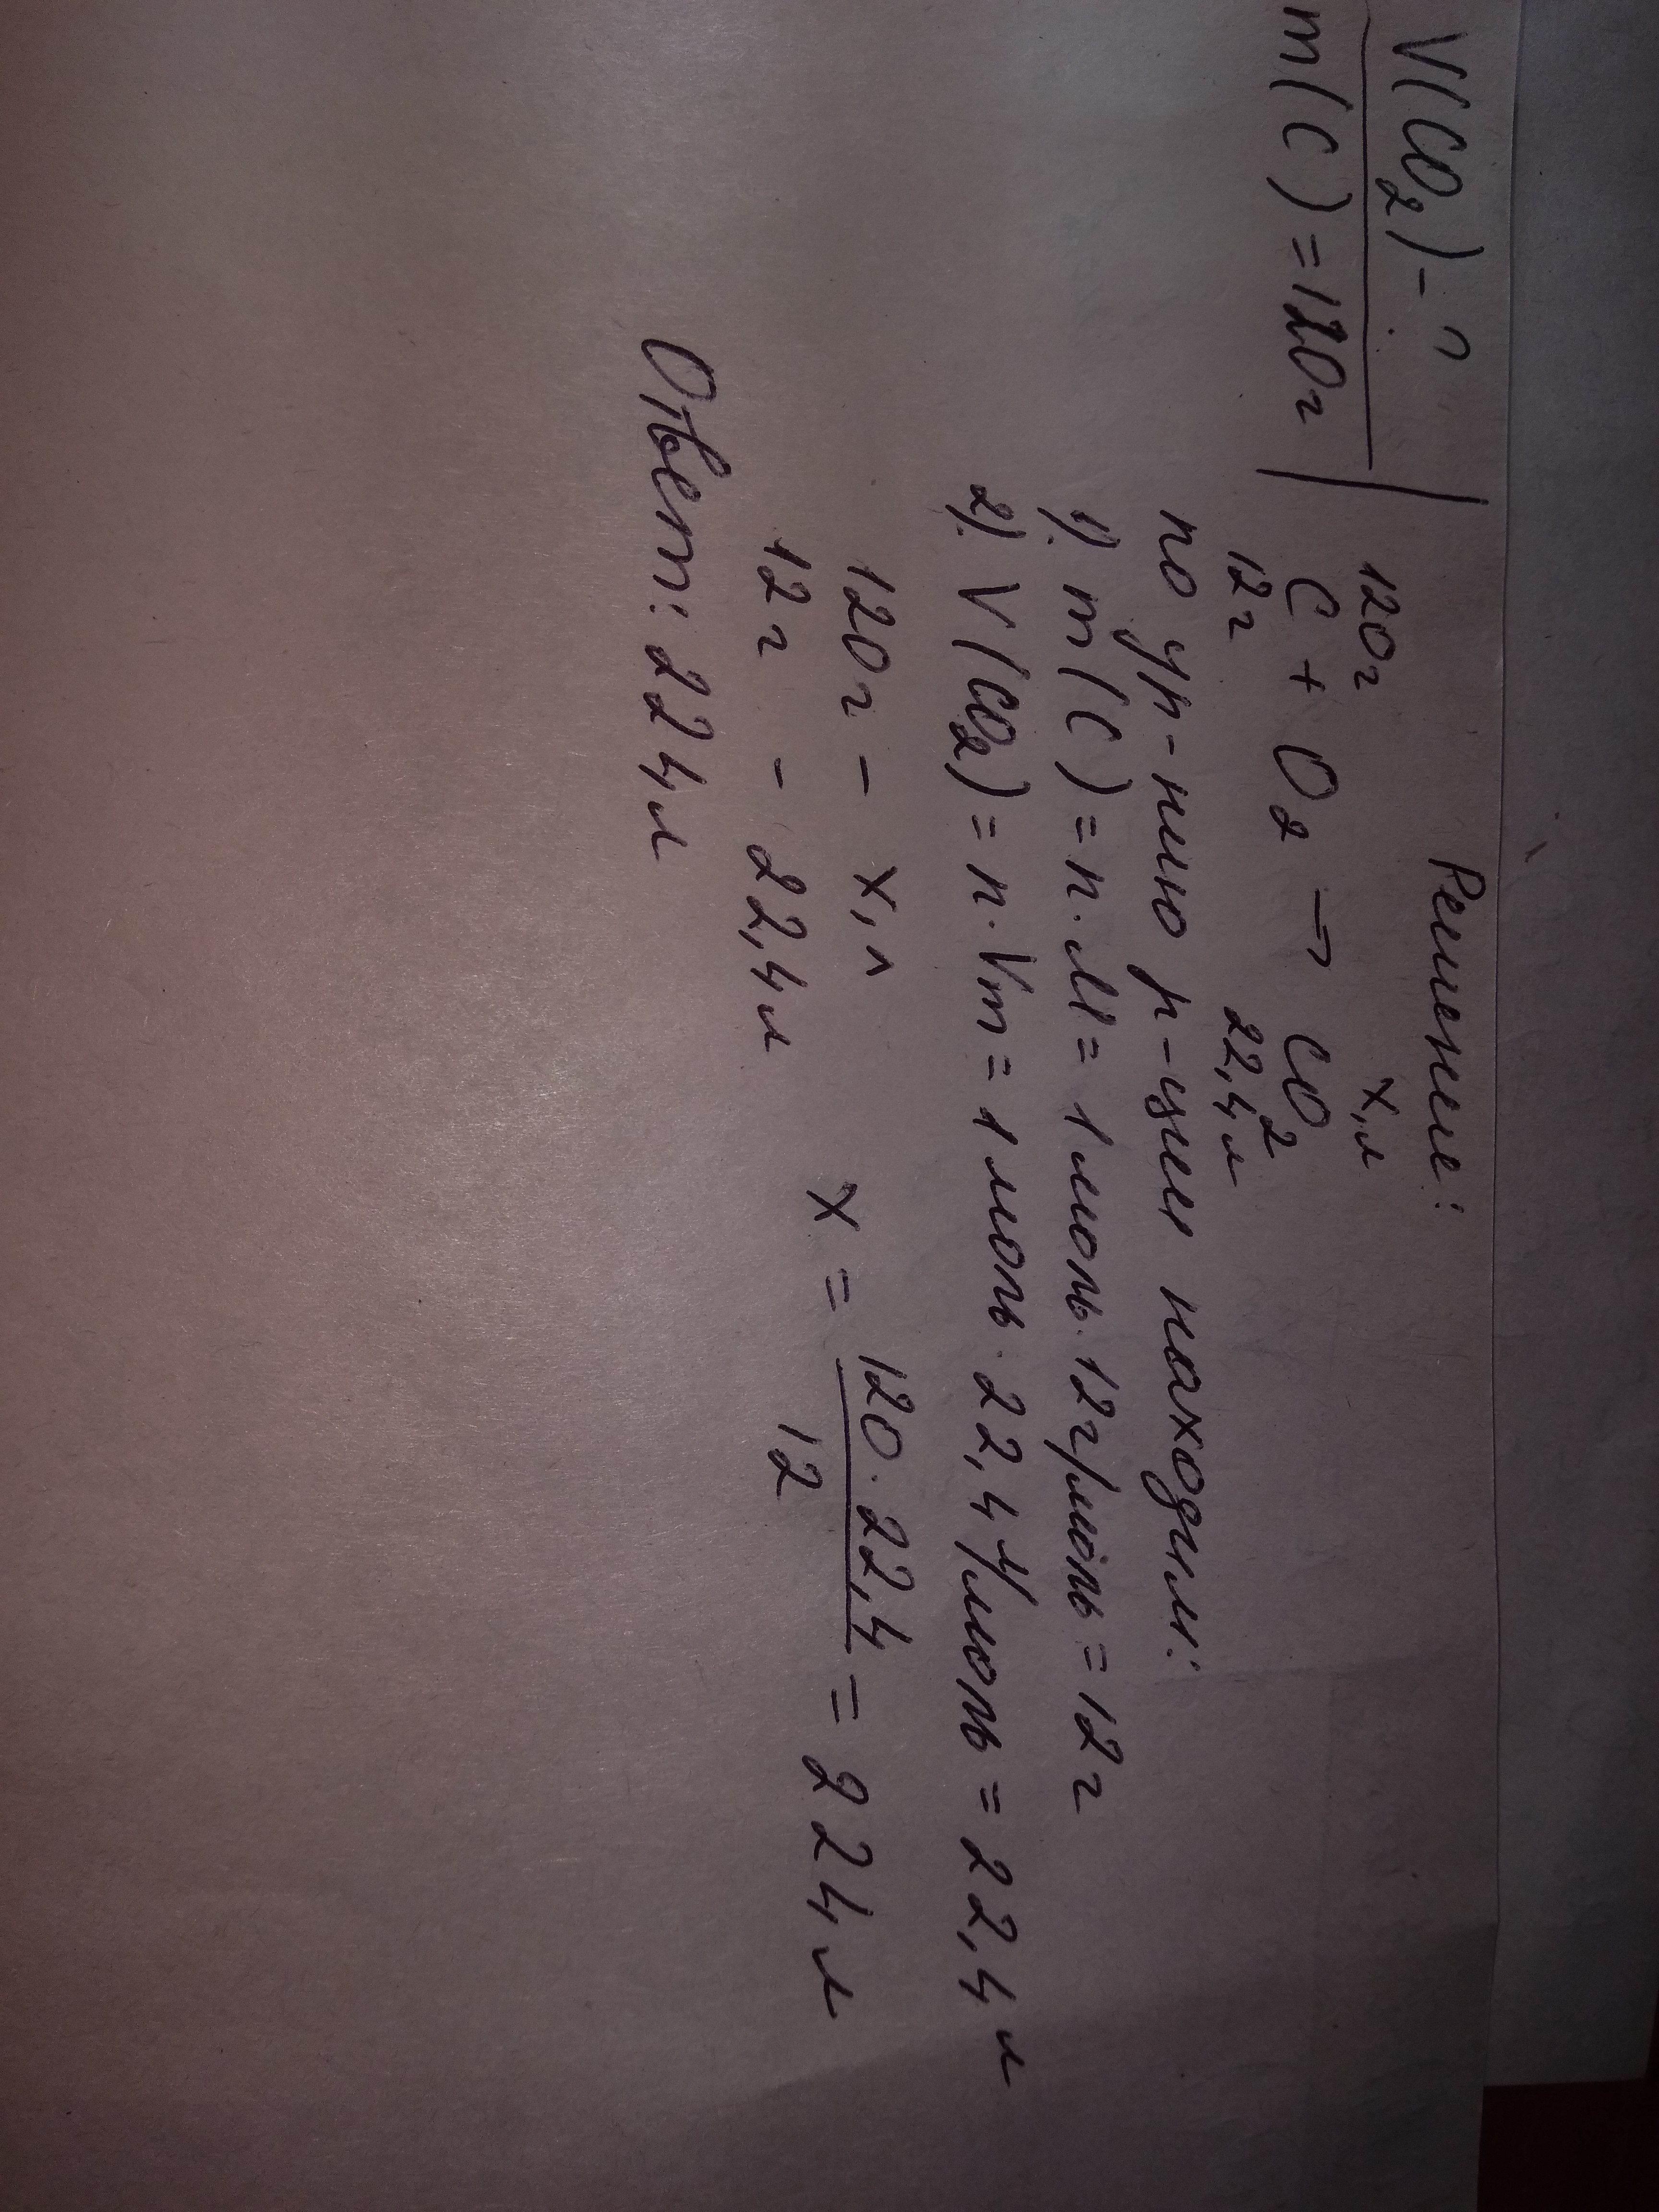 V(CO₂) - ?
m(C) = 120г
Решение:
120г х, л
C + O₂ → CO₂
12г 22,4л
по ур-нию р-ции находим:
1). m(C) = n · M = 1 моль · 12г/моль = 12г
2). V(CO₂) = n · Vm = 1 моль · 22,4 л/моль = 22,4 л
120г - х, л
12г - 22,4л
х = 120 · 22,4 / 12 = 224 л
Ответ: 224л